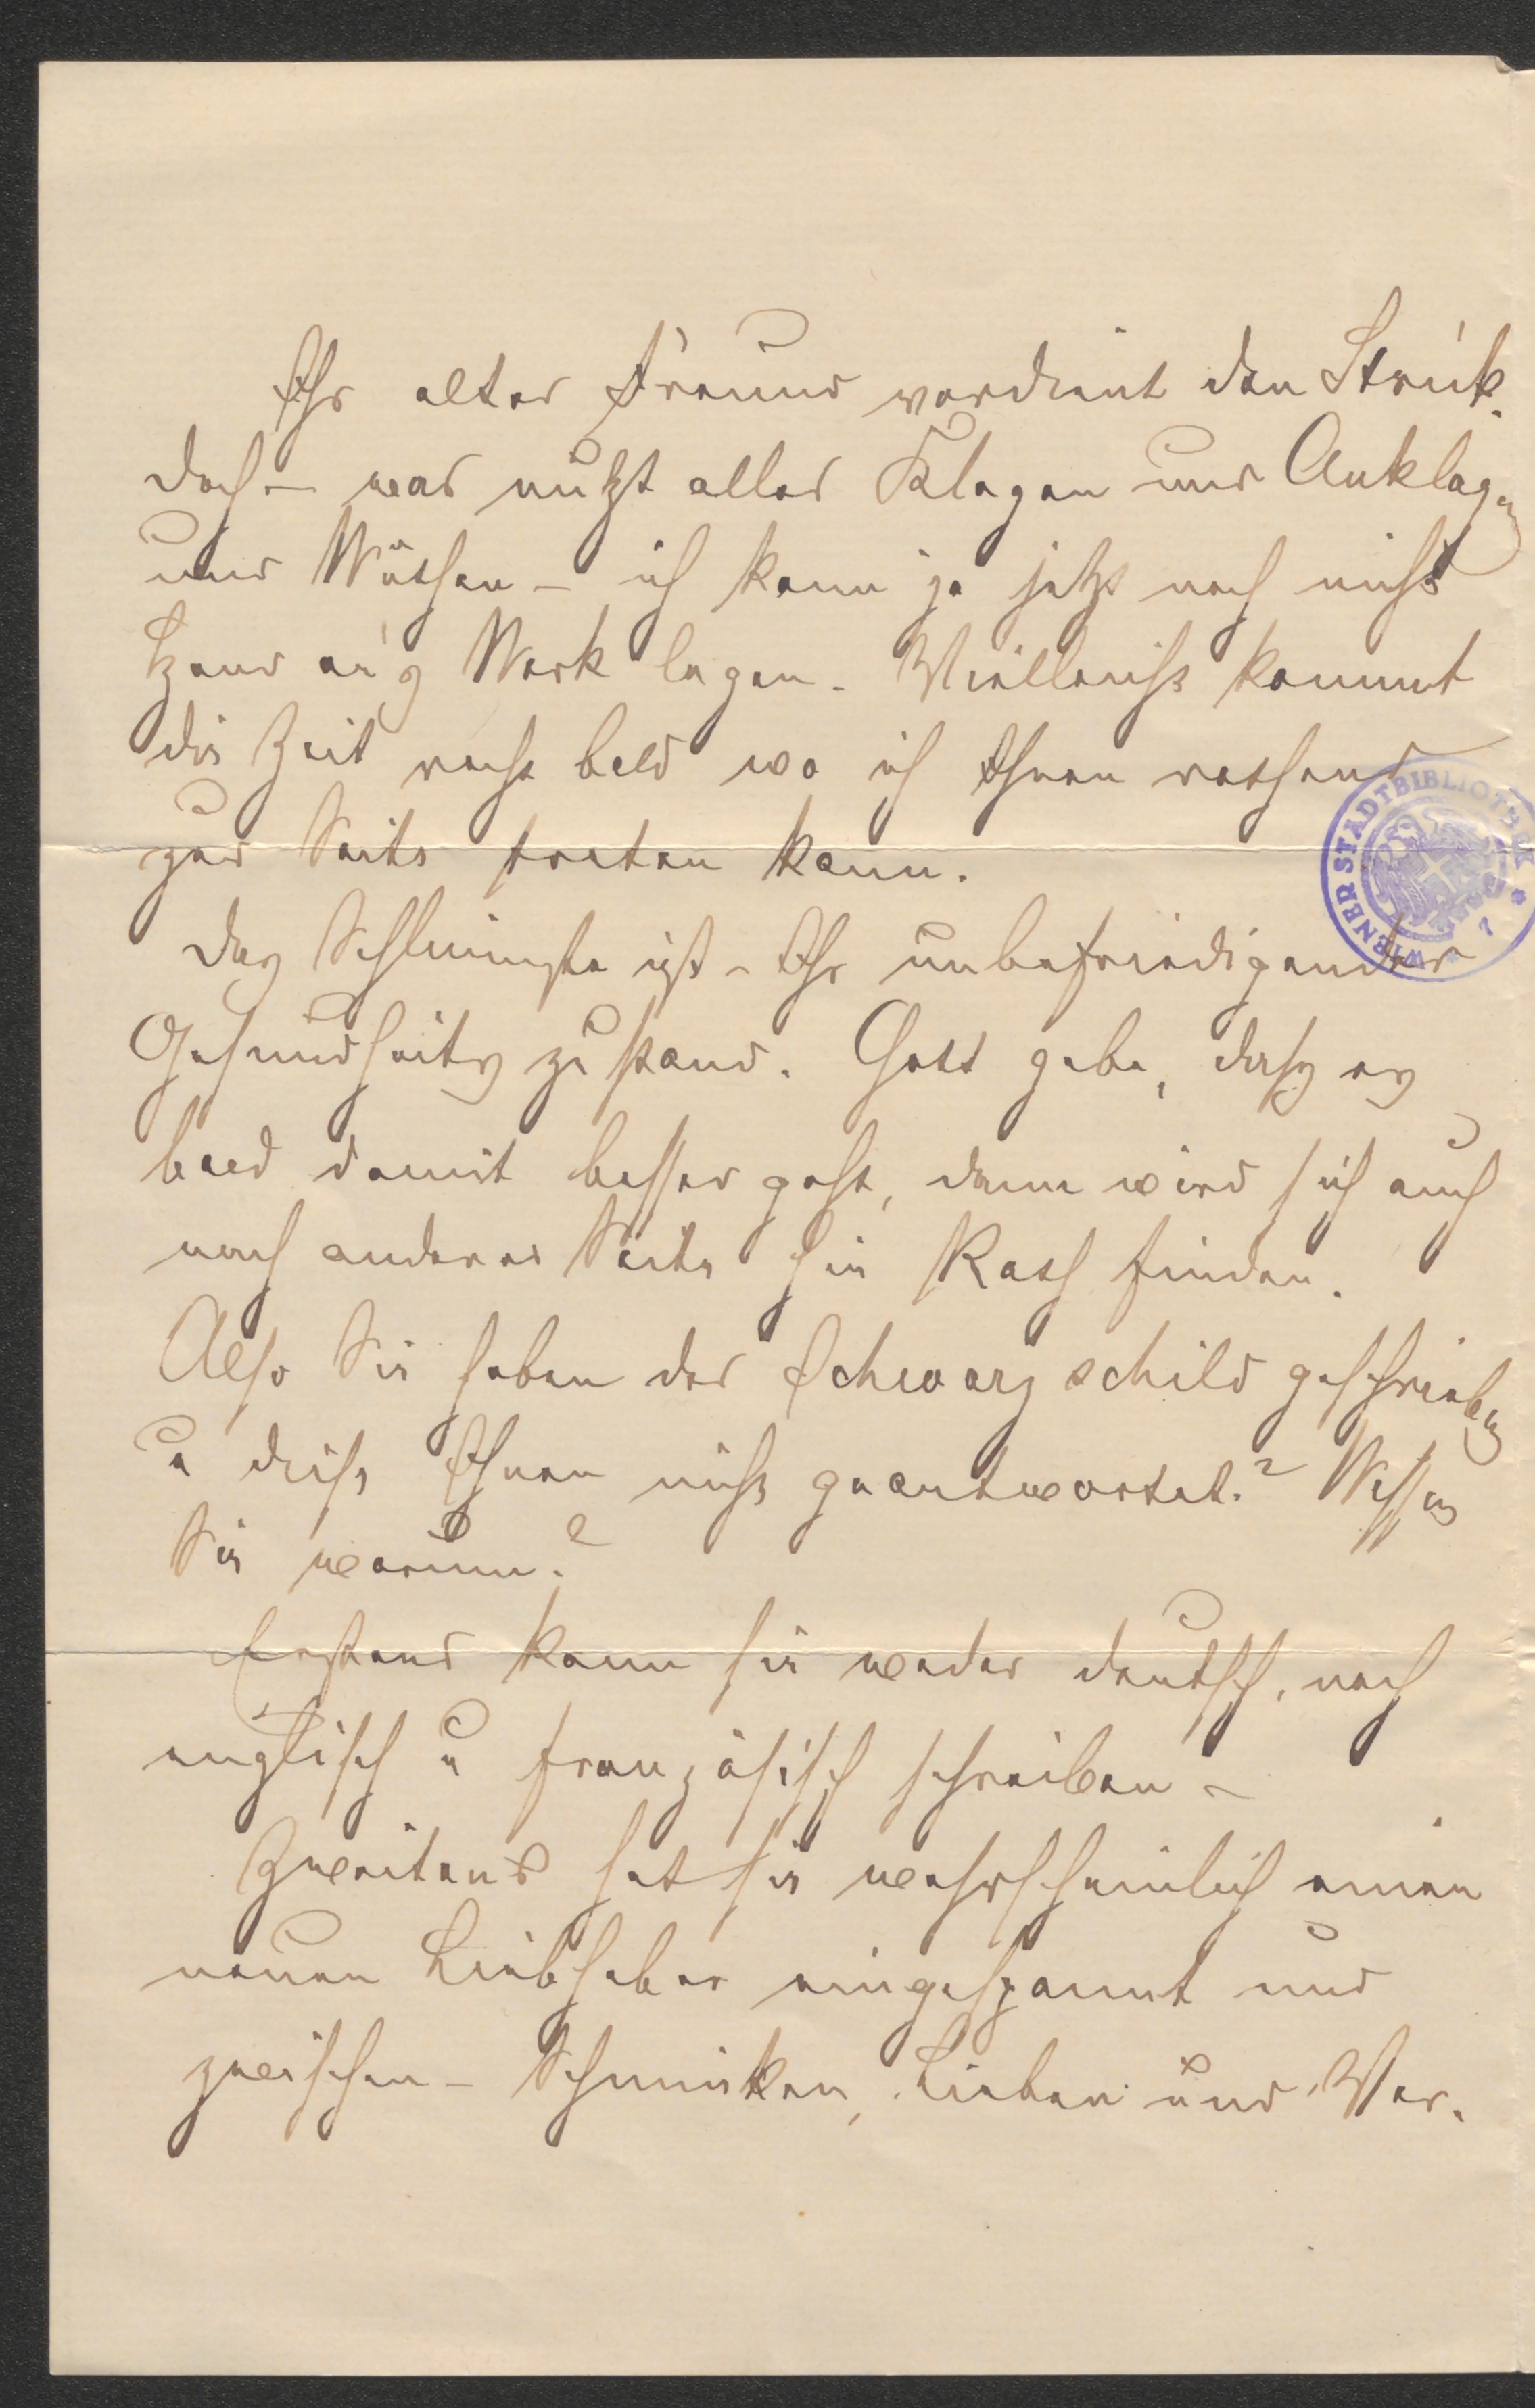 Ihr alter Freund verdient den Strick.
Doch – was nützt alles Klagen und Anklagen
und Wüthen – ich kann ja jetzt noch nicht
Hand an's Werk legen. Vielleicht kommt
die Zeit recht bald wo ich Ihnen rathend
zur Seite treten kann.
Das Schlimmste ist – Ihr unbefriedigender
Gesundheitszustand. Gott gebe, dass es
bald damit besser geht, dann wird sich auch
nach anderer Seite hin Rath finden.
Also Sie haben der Schwarzschild geschrieben
u die hat Ihnen nicht geantwortet? Wissen
Sie warum?
Erstens kann sie weder deutsch, noch
englisch u französisch schreiben –
Zweitens hat sie wahrscheinlich einen
neuen Liebhaber eingespannt und
zwischen – Schminken, Lieben und Ver-
WIENER STADTBIBLIOTHEK